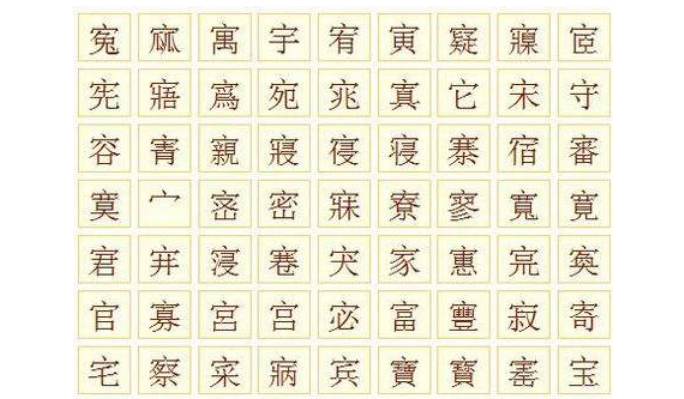 寃 寓 宇 宥 寅 宧
宪 寤 寪 宛 宨 真 它 宋 守
容 寈 寴 寢 寑 寝 寨 宿 審
寞 宀 密 寐 寮 寥 寬 寛
宭 宑 寖 寋 宊 家 寭 寏
官 寡 宮 宫 宓 富 寷 寂 寄
宅 察 寀 寎 宾 寶 寳 宝